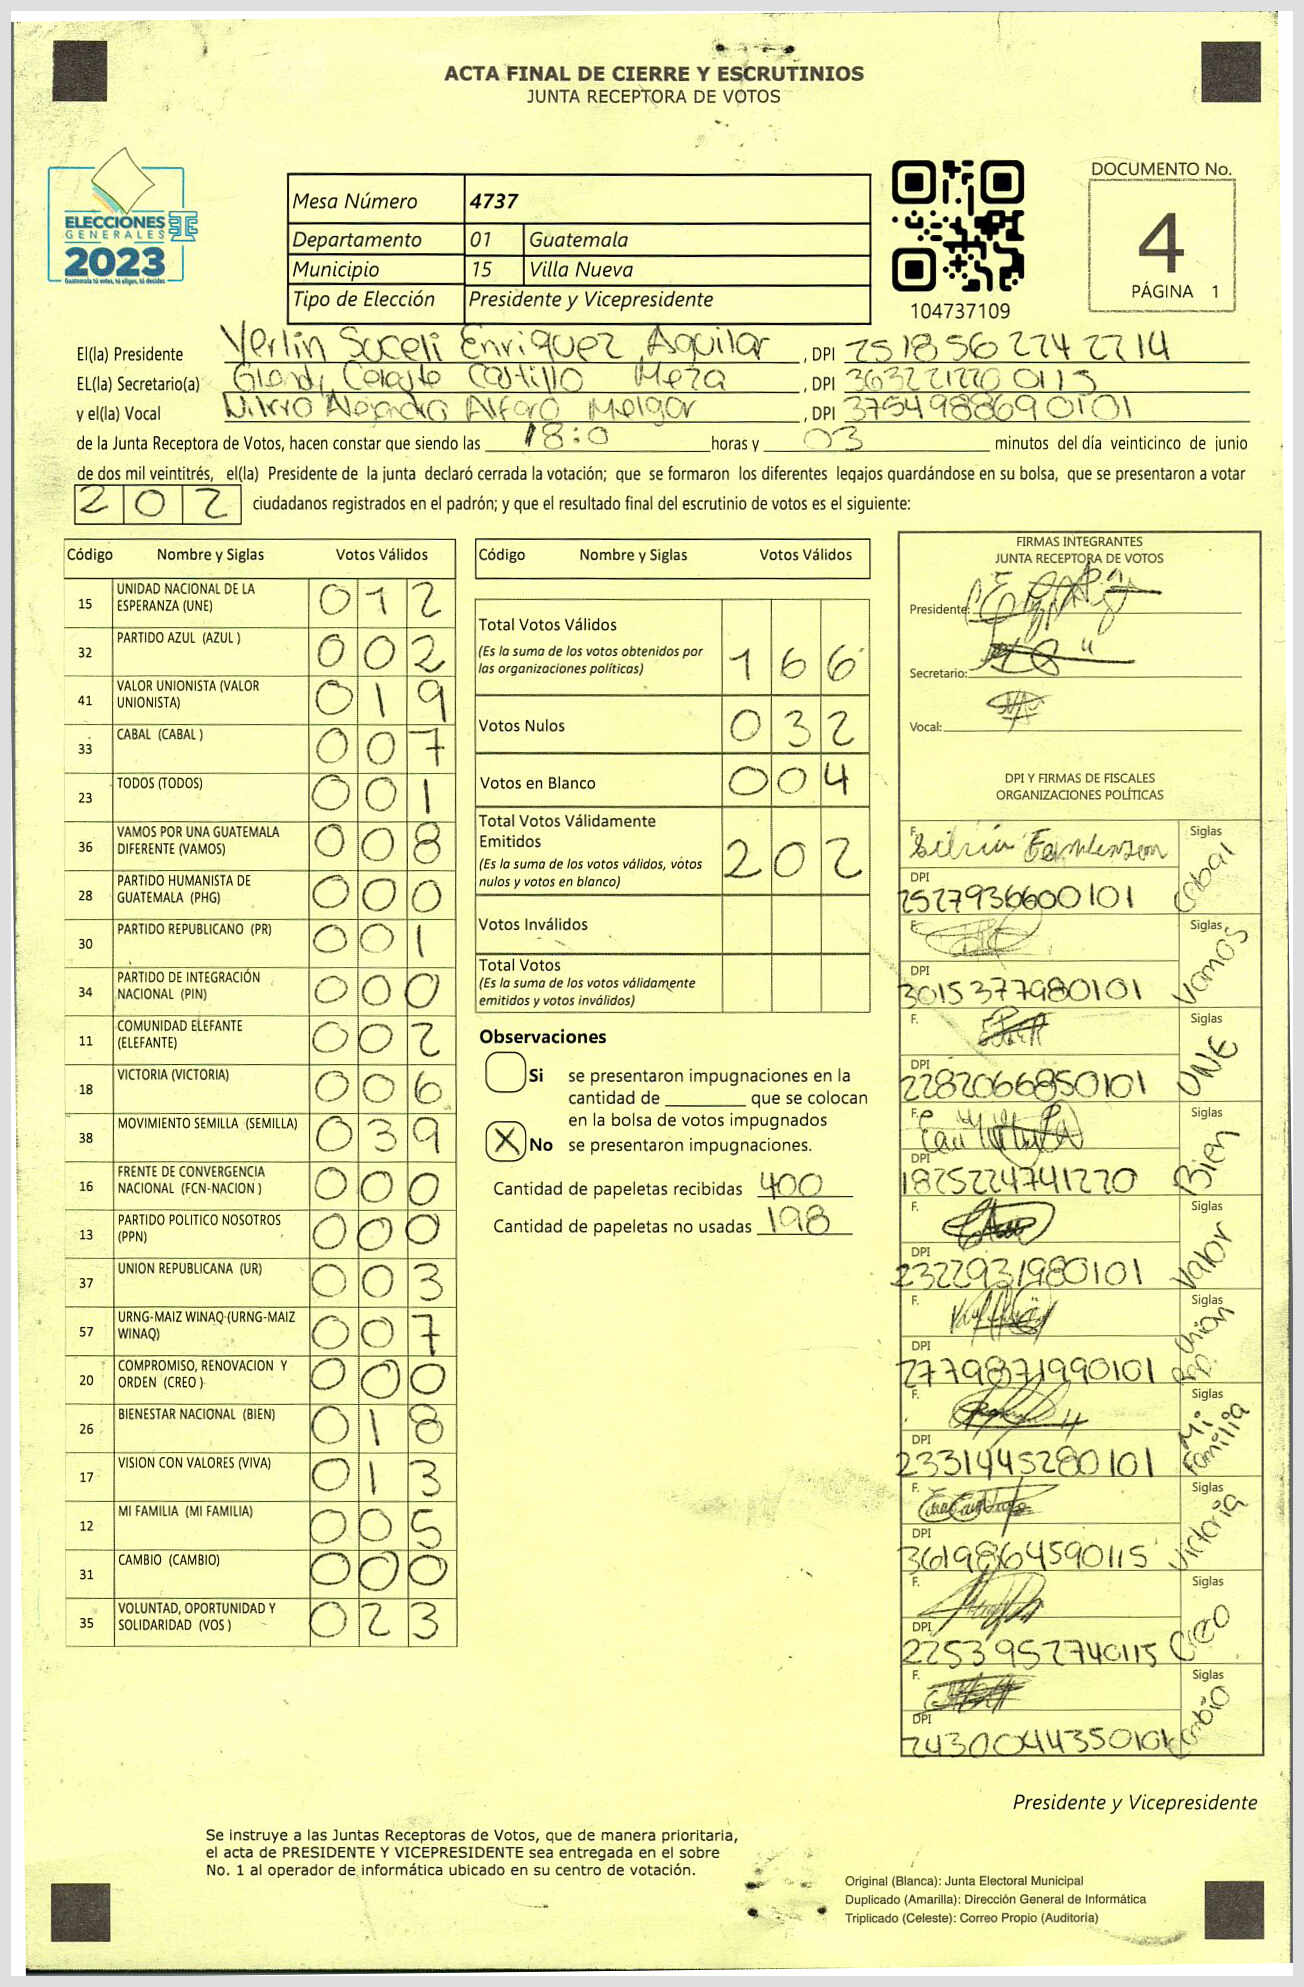 ACTA FINAL DE CIERRE Y ESCRUTINIOS
JUNTA RECEPTORA DE VOTOS
ELECCIONES
GENERALES
2023
Guatemala tú votes, tú eliges, tú decides
Mesa Número 4737
Departamento 01 Guatemala
Municipio 15 Villa Nueva
Tipo de Elección Presidente y Vicepresidente
104737109
DOCUMENTO No.
4
PÁGINA 1
El(la) Presidente Yerlin Suceli Enriquez Aguilar, DPI 2518562242214
EL(la) Secretario(a) Celeste Castillo Meza, DPI 3632212200115
y el(la) Vocal Alejandra Alfaro Melgar, DPI 3754988690101
de la Junta Receptora de Votos, hacen constar que siendo las 18:0 horas y 03 minutos del día veinticinco de junio
de dos mil veintitrés, el(la) Presidente de la junta declaró cerrada la votación; que se formaron los diferentes legajos guardándose en su bolsa, que se presentaron a votar
202 ciudadanos registrados en el padrón; y que el resultado final del escrutinio de votos es el siguiente:
Código Nombre y Siglas Votos Válidos
15 UNIDAD NACIONAL DE LA ESPERANZA (UNE) 012
32 PARTIDO AZUL (AZUL ) 002
41 VALOR UNIONISTA (VALOR UNIONISTA) 019
33 CABAL (CABAL ) 007
23 TODOS (TODOS) 001
36 VAMOS POR UNA GUATEMALA DIFERENTE (VAMOS) 008
28 PARTIDO HUMANISTA DE GUATEMALA (PHG) 000
30 PARTIDO REPUBLICANO (PR) 001
34 PARTIDO DE INTEGRACIÓN NACIONAL (PIN) 000
11 COMUNIDAD ELEFANTE (ELEFANTE) 002
18 VICTORIA (VICTORIA) 006
38 MOVIMIENTO SEMILLA (SEMILLA) 039
16 FRENTE DE CONVERGENCIA NACIONAL (FCN-NACION ) 000
13 PARTIDO POLITICO NOSOTROS (PPN) 000
37 UNION REPUBLICANA (UR) 003
57 URNG-MAIZ WINAQ (URNG-MAIZ WINAQ) 007
20 COMPROMISO, RENOVACION Y ORDEN (CREO ) 000
26 BIENESTAR NACIONAL (BIEN) 018
17 VISION CON VALORES (VIVA) 013
12 MI FAMILIA (MI FAMILIA) 005
31 CAMBIO (CAMBIO) 000
35 VOLUNTAD, OPORTUNIDAD Y SOLIDARIDAD (VOS ) 023
Código Nombre y Siglas Votos Válidos
Total Votos Válidos 166
(Es la suma de los votos obtenidos por las organizaciones políticas)
Votos Nulos 032
Votos en Blanco 004
Total Votos Válidamente Emitidos 202
(Es la suma de los votos válidos, votos nulos y votos en blanco)
Votos Inválidos
Total Votos
(Es la suma de los votos válidamente emitidos y votos inválidos)
Observaciones
Si se presentaron impugnaciones en la
cantidad de ________ que se colocan
en la bolsa de votos impugnados
X No se presentaron impugnaciones.
Cantidad de papeletas recibidas 400
Cantidad de papeletas no usadas 198
FIRMAS INTEGRANTES
JUNTA RECEPTORA DE VOTOS
Presidente:
Secretario:
Vocal:
DPI Y FIRMAS DE FISCALES
ORGANIZACIONES POLÍTICAS
F. Siglas Cabal
DPI 2527936600101
F. Siglas Vamos
DPI 3015377980101
F. Siglas UNE
DPI 2282066850101
F. Siglas Bien
DPI 1825224741220
F. Siglas Valor
DPI 2322931980101
F. Siglas Union Rep.
DPI 2779871990101
F. Siglas Mi Familia
DPI 2331445280101
F. Siglas Victoria
DPI 3619864590115
F. Siglas Creo
DPI 2253952740115
F. Siglas Cambio
DPI 2430044350101
Presidente y Vicepresidente
Se instruye a las Juntas Receptoras de Votos, que de manera prioritaria,
el acta de PRESIDENTE Y VICEPRESIDENTE sea entregada en el sobre
No. 1 al operador de informática ubicado en su centro de votación.
Original (Blanca): Junta Electoral Municipal
Duplicado (Amarilla): Dirección General de Informática
Triplicado (Celeste): Correo Propio (Auditoría)